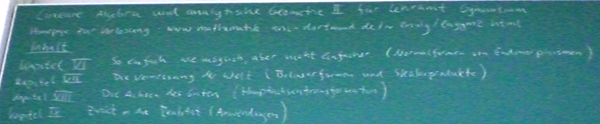 Lineare Algebra und analytische Geometrie II für Lehramt Gymnasium
Homepage zur Vorlesung: www.mathematik.uni-dortmund.de/
Inhalt
Kapitel VI So einfach wie möglich, aber nicht einfacher (Normalformen von Endomorphismen)
Kapitel VII Die Vermessung der Welt (Bilinearformen und Skalarprodukte)
Kapitel VIII Die Achsen des Guten (Hauptachsentransformation)
Kapitel IX Zurück in die Realität (Anwendungen)